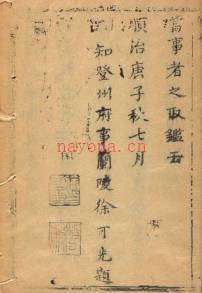 當事者之取鑑云
順治庚子秋七月
知登州府事蘭陵徐可先題
nayona.cn